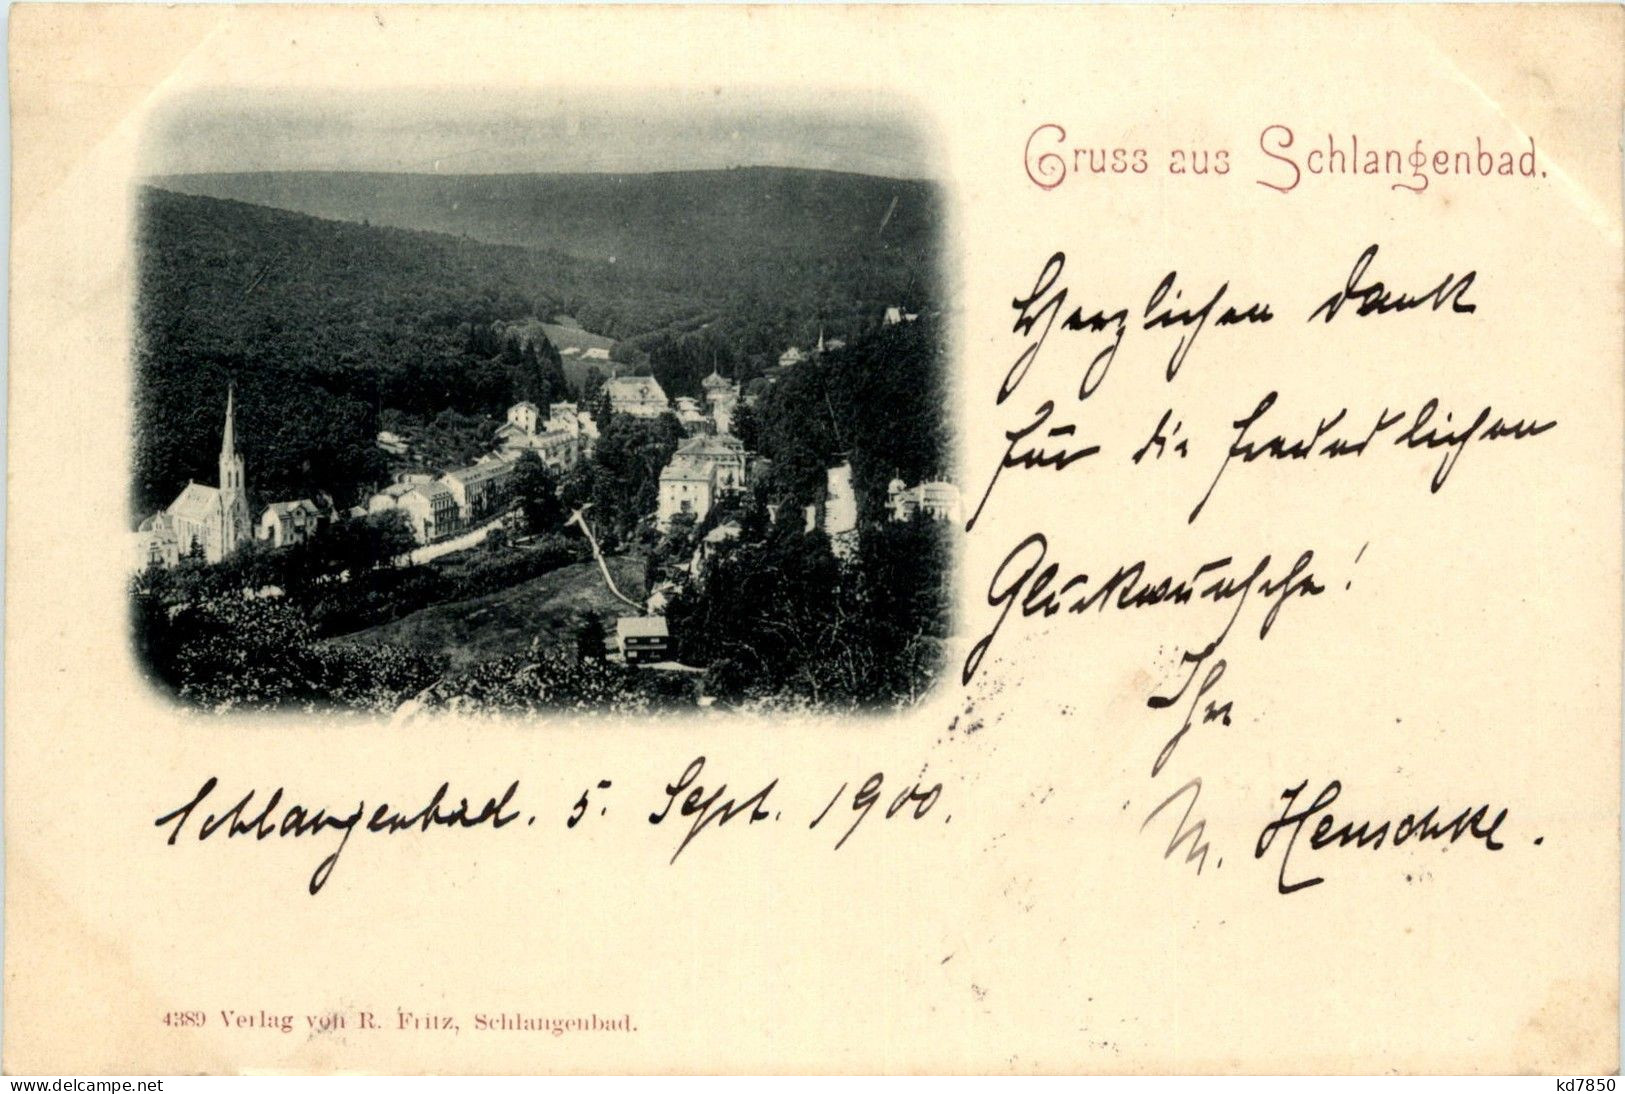 Gruss aus Schlangenbad.
Herzlichen Dank
für die freundlichen
Glückwünsche!
Ihr
M. Henschke.
Schlangenbad. 5. Sept. 1900.
4389 Verlag von R. Fritz, Schlangenbad.
www.delcampe.net
kd7850